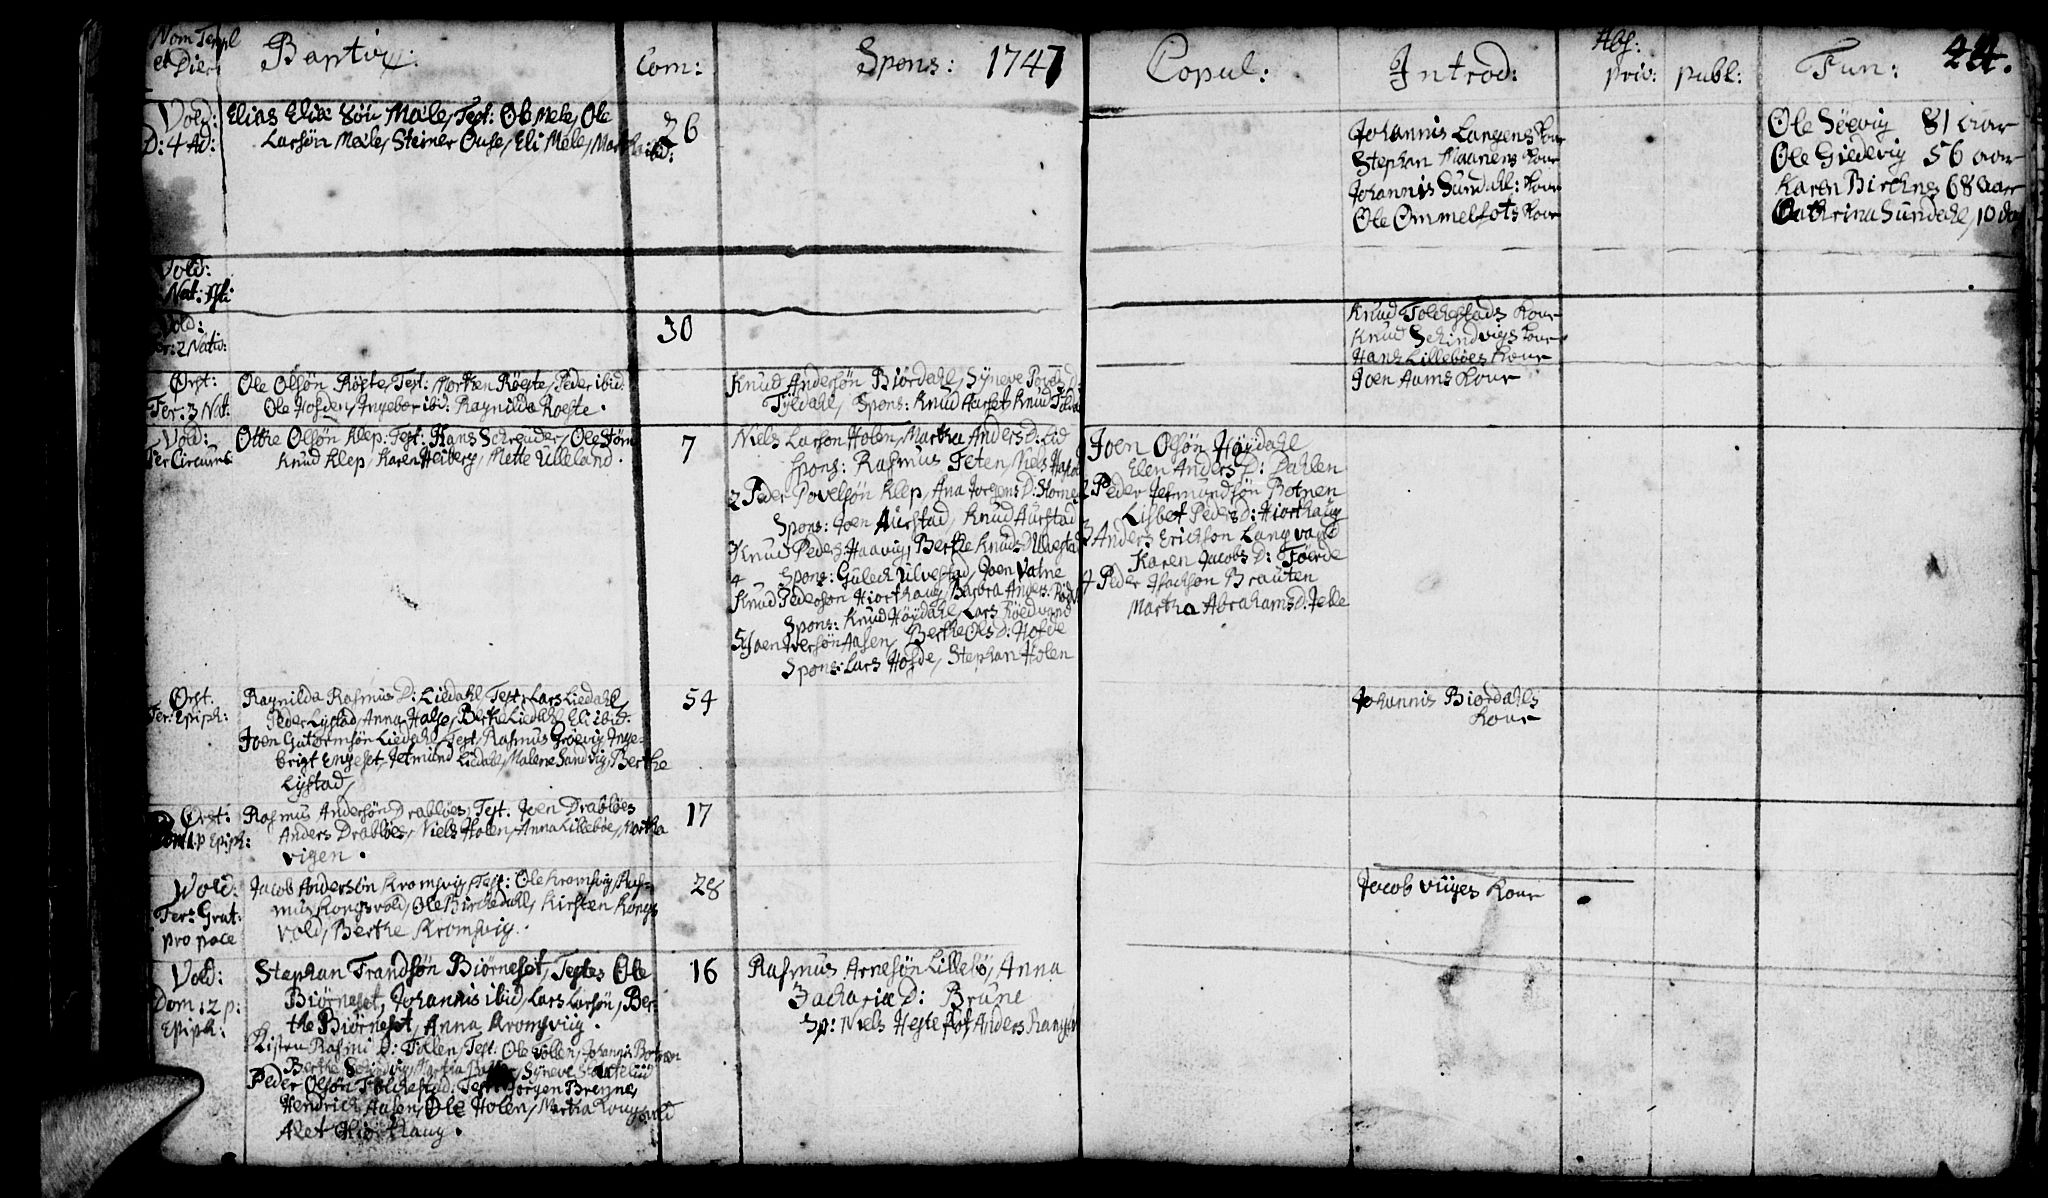 Nom Templ
et Dier
Baptiz:
Com:
Spons: 1747
Copul:
Introd:
Abs:
priv: publ:
Fun:
44.
Vold:
D: 4 Ad:
Elias Eliæ Søn Mæle, Test: Ole Mele, Ole
Larsøn Mæle, Steiner Ouse, Eli Mele, Martha ibid:
26
Johannis Langens Kone
Stephan Maanens Kone
Johannis Sundahl: Kone
Ole Ommelfots Kone
Ole Søevig 81 aar
Ole Giedevig 56 aar
Karen Birchnes 68 aar
Cathrina Sundahl, 10 dag
Vold:
Nat: Xsti:
Vold:
Fer: 2 Nativ:
30
Knud Folchestads Kone
Knud Schindvigs Kone
Hans Lillebøes Kone
Joen Aams Kone
Ørst:
Fer: 3 Nat:
Ole Olsøn Røste, Test: Morten Røeste, Peder ibid:
Ole Hofden, Ingebor ibid: Ragnilda Roeste.
Knud Andersøn Biørdahl, Syneve Povels D:
Tyldahl, Spons: Knud Aarset Knud
Vold:
Fer Circums:
Othe Olsøn Klep: Test: Hans Schreuder, Ole Størn
Knud Klep, Karen Heiberg, Mette Ulleland.
7
Niels Larson Holen, Martha Anders D: Lid
Spons: Rasmus Teten, Niels
2 Peder Povelsøn Klep, Ana Jorgens D:
Spons: Joen Aurstad, Knud Aurstad
3 Knud Peders Haavig, Berthe Knuds D Ulvestad
4 Spons: Gulech Ulvestad, Joen Vatne
Knud Pederson Hiorthaug, Barbra Anders:
Spons: Knud Høydahl, Lars Røedvand
5 Joen Iversøn Aasen, Berthe Ols D: Hofde
Spons: Lars Hofde, Stephan Holen
Joen Olsøn Høydahl
Elen Anders D: Dahlen
2 Peder Jetmundsøn Botnen
Lisbet Peders D: Hiorthaug
3 Anders Erichson Langvand
Karen Jacobs D: Føerde
4 Peder Isachson Brauten
Martha Abrahams D. Jelle
Ørst.
Fer: Epiph:
Ragnilda Rasmus D: Liedahl, Test: Lars Liedahl,
Peder Lystad, Anna Halse, Berthe Liedahl, Eli ibid:
Joen Gutormsøn Liedahl, Test, Rasmus Grøevig, Inge-
brigt Engeset, Jetmund Liedahl, Malene Sandvig, Berthe
Lystad,
54
Johannis Biørdahls
Kone
Ørst:
Dom 1. p Epiph:
Rasmus Andersøn Drabløes, Test. Joen Drabløes
Anders Drabløes, Niels Holen, Anna Lillebøe, Martha
vigen.
17
Vold:
Fer: Grat:
pro pace
Jacob Andersøn Kromsvig, Test: Ole Kromsvig, Ras-
mus Kongsvold, Ole Birchedahl, Kirsten Kongs
vold, Berthe Kromsvig.
28
Jacob Viiges Kone
Vold:
Dom: 2 p:
Epiph:
Stephan Frandsøn Biørneset, Testes Ole
Biørneset, Johannis ibid, Lars Larsøn, Ber-
the Biørneset, Anna Kromsviig.
Kisten Rasmi D: Follen, Test: Ole Follen, Johannis Botnen
Berthe Syneve
Peder Olsøn Folchestad: Test: Jorgen Brennes
Hendrich Aasen, Ole Holen, Martha Kongsvold
Alet Hiorthaug.
16
Rasmus Arnesøn Lillebø, Anna
Zachariæ D: Brune
Sp: Niels Hestefot, Anders